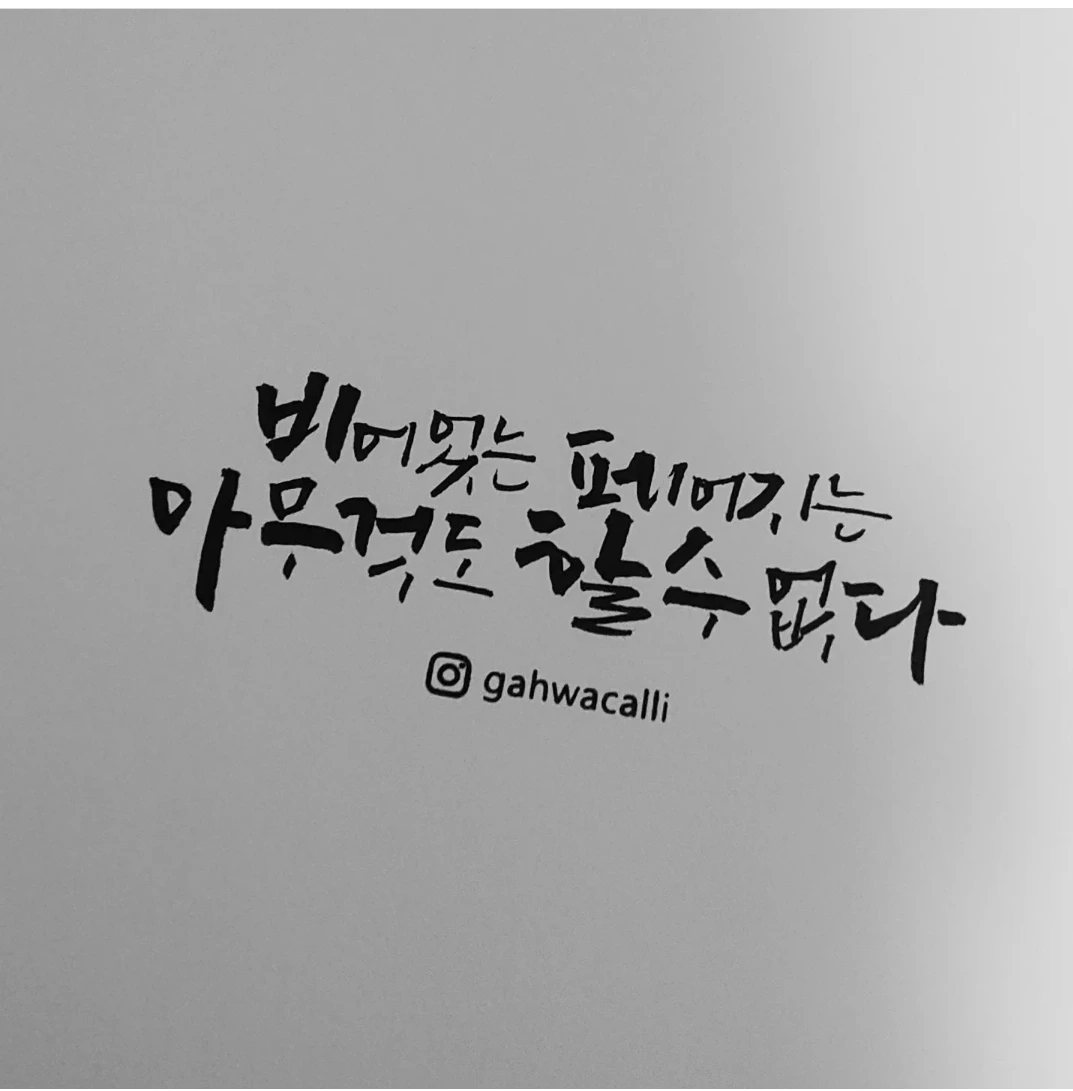 비어있는 페이지는
아무것도 할수 없다
gahwacalli